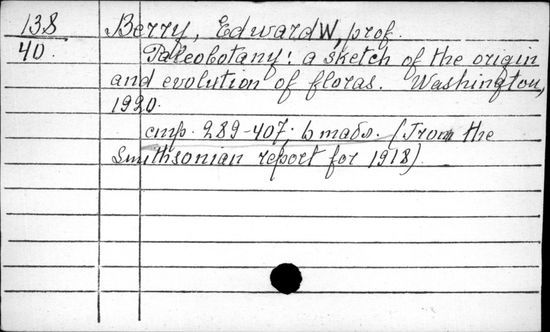 138 Berry, Edward W, prof.
40. Paleobotany: a sketch of the origin
and evolution of floras. Washington,
1920.
стр. 289-407. 6 табл. (From the
Smithsonian report for 1918)